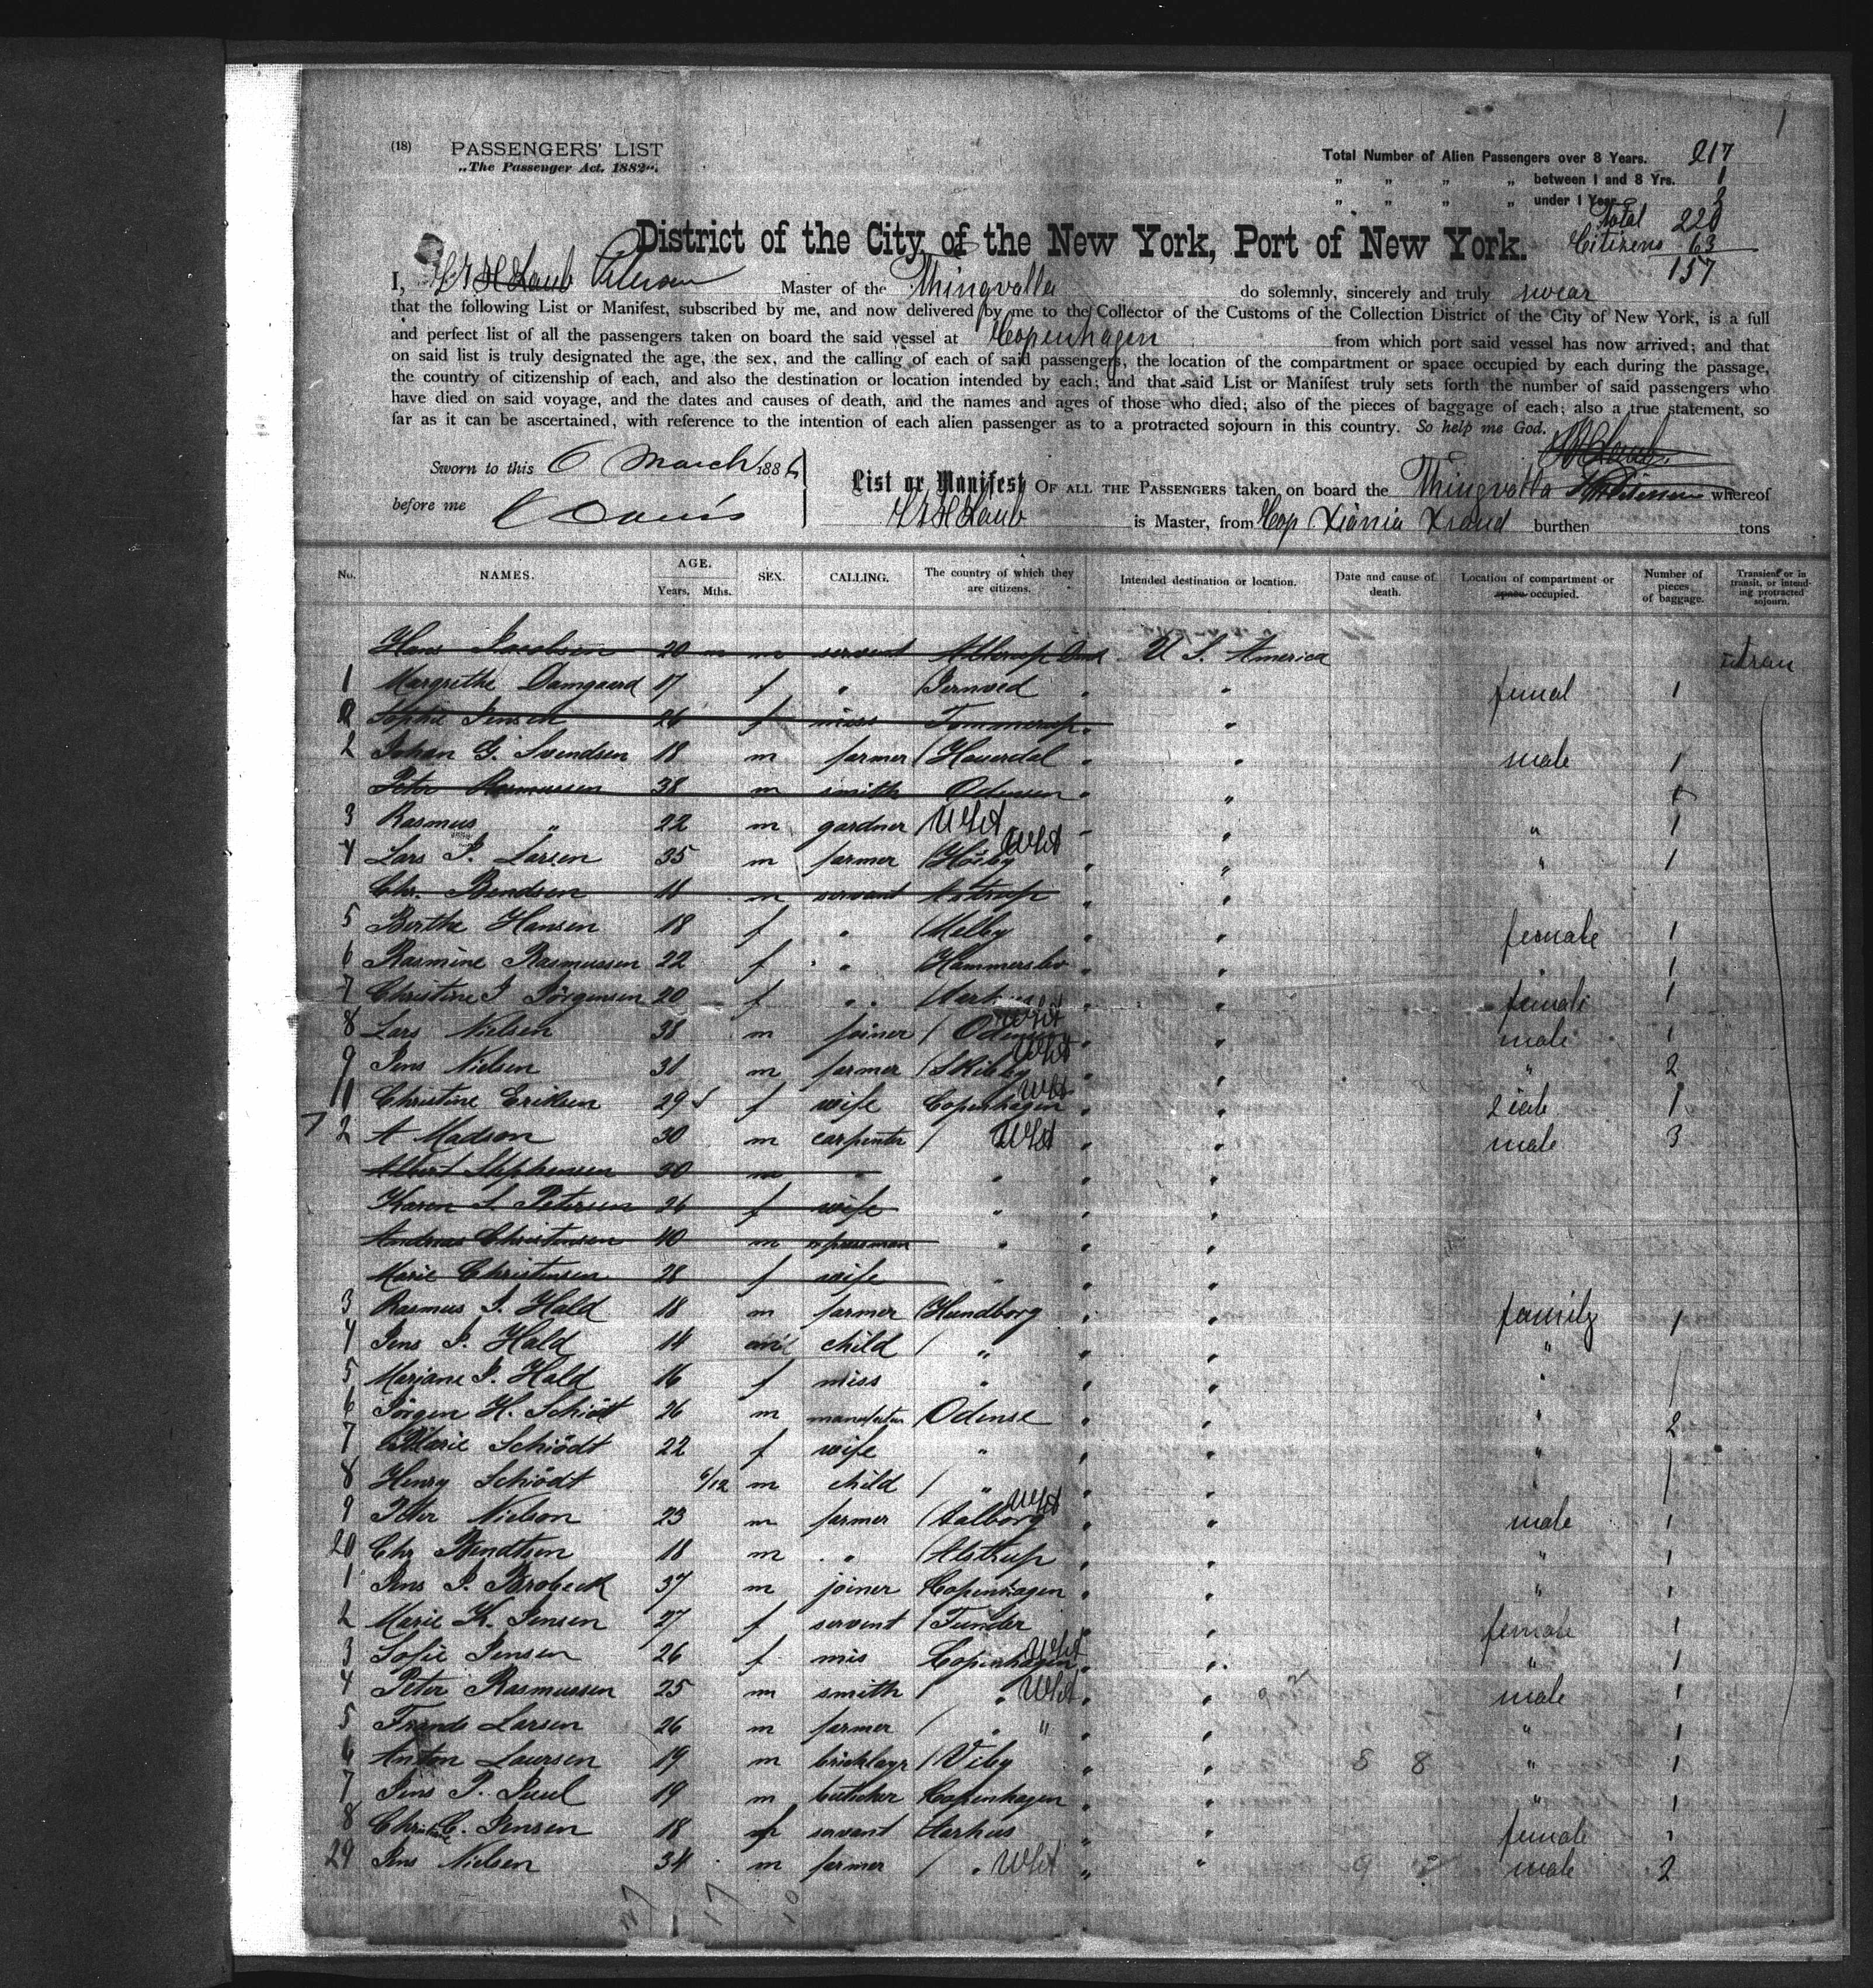 1
(18) PASSENGERS' LIST
„The Passenger Act, 1882“.
Total Number of Alien Passengers over 8 Years. 217
„ „ „ „ between 1 and 8 Yrs. 1
„ „ „ „ under 1 Year 2
Total 220
Citizens 63
157
District of the City of the New York, Port of New York.
I, Laub Petersen Master of the Thingvalla do solemnly, sincerely and truly swear
that the following List or Manifest, subscribed by me, and now delivered by me to the Collector of the Customs of the Collection District of the City of New York, is a full
and perfect list of all the passengers taken on board the said vessel at Copenhagen from which port said vessel has now arrived; and that
on said list is truly designated the age, the sex, and the calling of each of said passengers, the location of the compartment or space occupied by each during the passage,
the country of citizenship of each, and also the destination or location intended by each; and that said List or Manifest truly sets forth the number of said passengers who
have died on said voyage, and the dates and causes of death, and the names and ages of those who died; also of the pieces of baggage of each; also a true statement, so
far as it can be ascertained, with reference to the intention of each alien passenger as to a protracted sojourn in this country. So help me God.
Sworn to this 6 March 1886
before me Davis
List or Manifest OF ALL THE PASSENGERS taken on board the Thingvalla whereof
Laub is Master, from Cop Xiania Xsand burthen tons
No. NAMES. AGE. Years. Mths. SEX. CALLING. The country of which they are citizens. Intended destination or location. Date and cause of death. Location of compartment or space occupied. Number of pieces of baggage. Transient or in transit, or intending protracted sojourn.
Hans Jacobsen 20 m servent U S. America tran
1 Margrethe Damgaard 17 f „ „ femal 1
Sophie Jensen 26 f miss Tommerup „
2 Johan G. Svendsen 18 m farmer Hauerdal „ male 1
Peter Rasmussen 38 m smith Odensen „
3 Rasmus „ 22 m gardner „ „ 1
4 Lars P. Larsen 35 m farmer „ „ 1
Chr. Bendsen 11 m servant „
5 Berthe Hansen 18 f „ Melby „ female 1
6 Rasmine Rasmussen 22 f „ Hammerslev „ „ 1
7 Christine J Jörgensen 20 f „ „ female 1
8 Lars Nielsen 38 m joiner „ male 1
9 Jens Nielsen 31 m farmer Skiby „ „ 2
11 Christine Eriksen 29 f wife Copenhagen „ 1
2 A Madson 30 m carpenter „ male 3
Albert Stephensen 30 m „ „ „
Karen S. Petersen 26 f wife „ „
Andreas Christensen 40 m „ „
Marie Christensen 28 f wife „ „
3 Rasmus J. Hald 18 m farmer Hundborg „ family 1
4 Jens J. Hald 14 m child „ „ „
5 Marjane J. Hald 16 f miss „ „ „
6 Jörgen H. Schiödt 26 m Odense „ „ 2
7 Marie Schiödt 22 f wife „ „ „
8 Henry Schiödt 6/12 m child „ „ „
9 Peter Nielson 23 m farmer Aalborg „ male 1
20 Chr Bendtsen 18 m „ Alstrup „ „ 1
1 Jens P. Brobeck 37 m joiner Copenhagen „ „ 1
2 Marie K. Jensen 27 f servent Funder „ female 1
3 Sofie Jensen 26 f mis Copenhagen „ „ 1
4 Peter Rasmussen 25 m smith „ „ male 1
5 Larsen 26 m farmer „ „ „ 1
6 Anton Laursen 19 m bricklayr Viby „ „ 1
7 Jens P. Juul 19 m butcher Copenhagen „ „ 1
8 Christine C. Jensen 18 f servant Aarhus „ female 1
29 Jens Nielsen 34 m farmer „ „ male 2